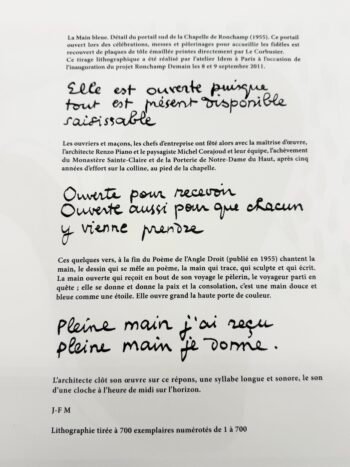 La Main bleue. Détail du portail sud de la Chapelle de Ronchamp (1955). Ce portail
ouvert lors des célébrations, messes et pèlerinages pour accueillir les fidèles est
recouvert de plaques de tôle émaillée peintes directement par Le Corbusier.
Ce tirage lithographique a été réalisé par l'atelier Idem à Paris à l'occasion de
l'inauguration du projet Ronchamp Demain les 8 et 9 septembre 2011.
Elle est ouverte puisque
tout est présent disponible
saisissable
Les ouvriers et maçons, les chefs d'entreprise ont fêté alors avec la maîtrise d'œuvre,
l'architecte Renzo Piano et le paysagiste Michel Corajoud et leur équipe, l'achèvement
du Monastère Sainte-Claire et de la Porterie de Notre-Dame du Haut, après cinq
années d'effort sur la colline, au pied de la chapelle.
Ouverte pour recevoir
Ouverte aussi pour que chacun
y vienne prendre
Ces quelques vers, à la fin du Poème de l'Angle Droit (publié en 1955) chantent la
main, le dessin qui se mêle au poème, la main qui trace, qui sculpte et qui écrit.
La main ouverte qui reçoit en bout de son voyage le pèlerin, le voyageur parti en
quête ; elle se donne et donne la paix et la consolation, c'est une main douce et
bleue comme une étoile. Elle ouvre grand la haute porte de couleur.
Pleine main j'ai reçu
pleine main je donne.
L'architecte clôt son œuvre sur ce répons, une syllabe longue et sonore, le son
d'une cloche à l'heure de midi sur l'horizon.
J-F M
Lithographie tirée à 700 exemplaires numérotés de 1 à 700